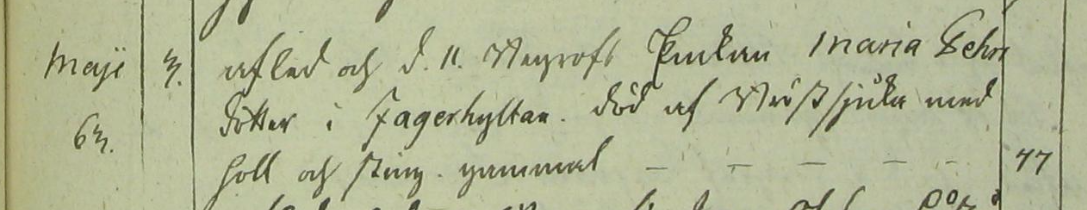 Maji 3. afled och d. 11. begrofs Enkan Maria Pehrs
63. dotter i Fagerhyltan. död af Bröstsjuka med
håll och sting. gammal — — — — — 77